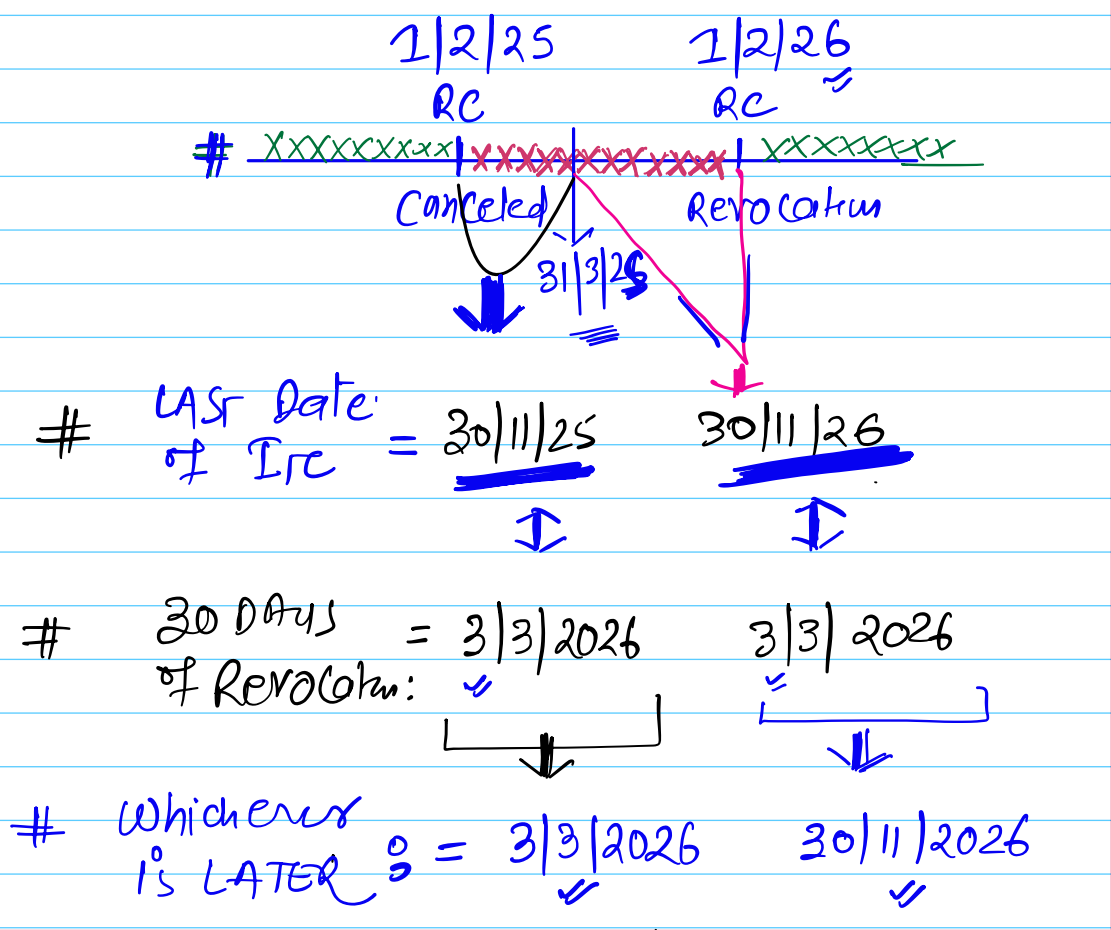 1/2/25 1/2/26
RC RC
# XXXXXXXXX XXXXXXXXXXXXX XXXXXXXX
Canceled Revocation
31/3/25
# LAST Date
of ITC = 30/11/25 30/11/26
# 30 DAYS
of Revocation: = 3/3/2026 3/3/2026
# Whichever
is LATER : = 3/3/2026 30/11/2026